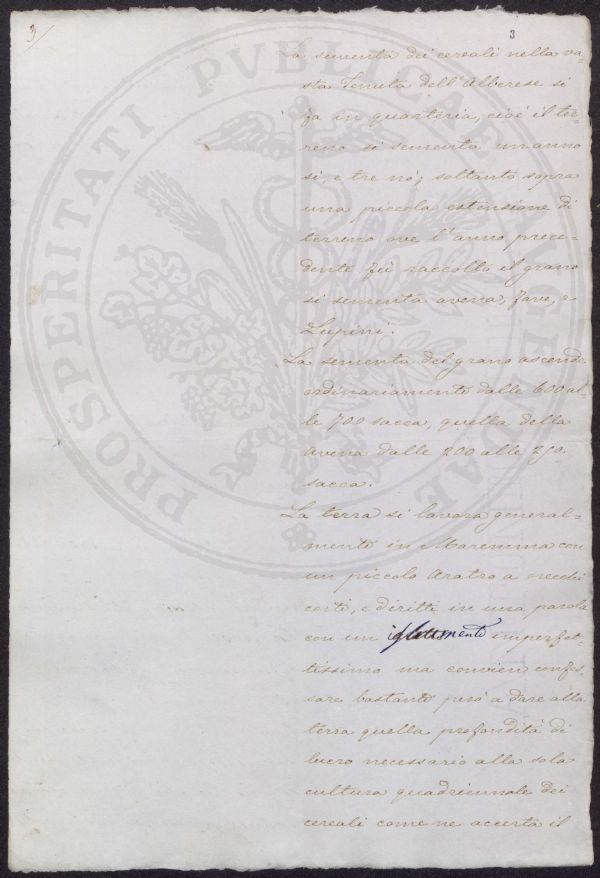 3/
3
La sementa dei cereali nella va-
sta Tenuta dell'Alberese si
fa in quarteria, cioè il ter-
reno si sementa un anno
si, e tre nò; soltanto sopra
una piccola estensione di
terreno ove l'anno prece-
dente fù raccolto il grano
si sementa avena, fave, e
Lupini.
La sementa del grano ascende
ordinariamente dalle 600 al-
le 700 sacca, quella della
avena dalle 200 alle 250.
sacca.
La terra si lavora general-
mente in Maremma con
un piccolo Aratro a orecchi
corti, e diritti in una parola
con un imperfet-
tissimo ma convien confes-
sare bastante però a dare alla
terra quella profondità di
lucro necessario alla sola
cultura quadriennale dei
cereali come ne accerta il
PROSPERITATI PVBLICAE AVGENDAE